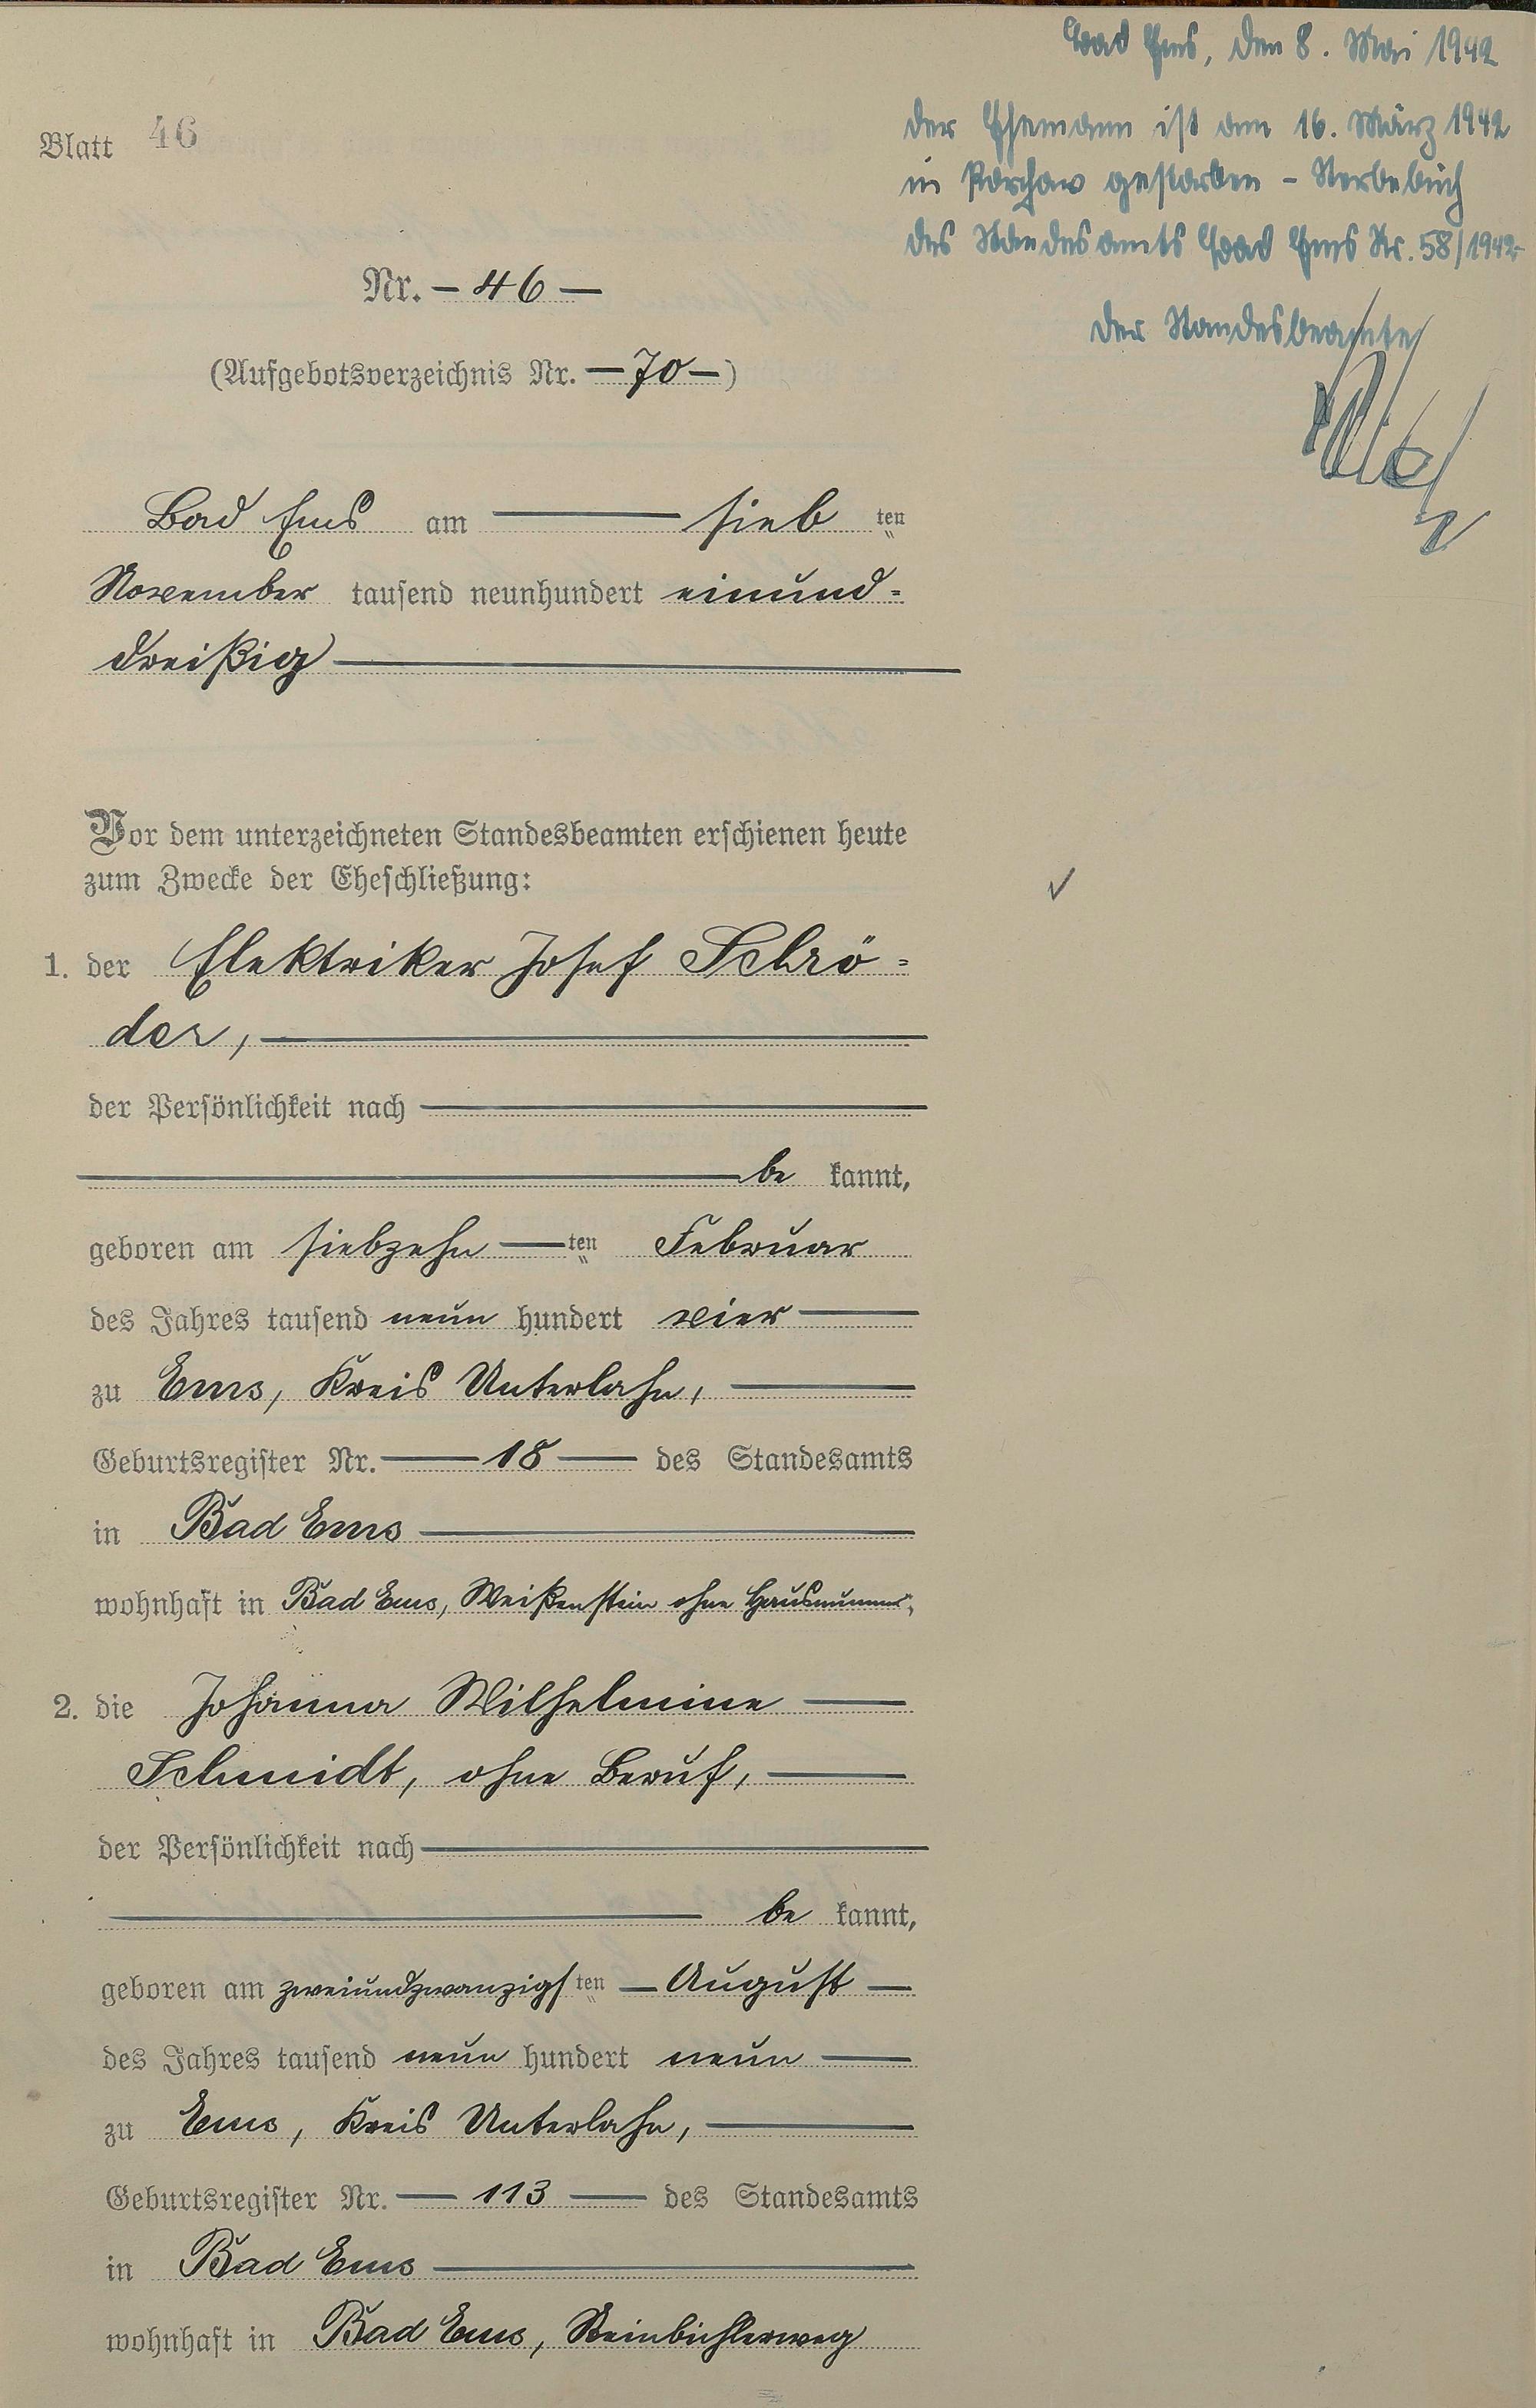 Bad Ems, den 8. Mai 1942
Der Ehemann ist am 16. März 1942
in gestorben – Sterbebuch
des Standesamts Bad Ems Nr. 58/1942
Der Standesbeamte
Blatt 46
Nr. – 46 –
(Aufgebotsverzeichnis Nr. – 70 –)
Bad Ems am sieb ten
November tausend neunhundert einund-
dreißig
Vor dem unterzeichneten Standesbeamten erschienen heute
zum Zwecke der Eheschließung:
1. der Elektriker Josef Schrö-
der,
der Persönlichkeit nach
be kannt,
geboren am siebzehn ten Februar
des Jahres tausend neun hundert vier
zu Ems, Kreis Unterlahn,
Geburtsregister Nr. 18 des Standesamts
in Bad Ems
wohnhaft in Bad Ems, Weißenstein ohne Hausnummer,
2. die Johanna Wilhelmine
Schmidt, ohne Beruf,
der Persönlichkeit nach
be kannt,
geboren am zweiundzwanzigs ten August
des Jahres tausend neun hundert neun
zu Ems, Kreis Unterlahn,
Geburtsregister Nr. 113 des Standesamts
in Bad Ems
wohnhaft in Bad Ems,